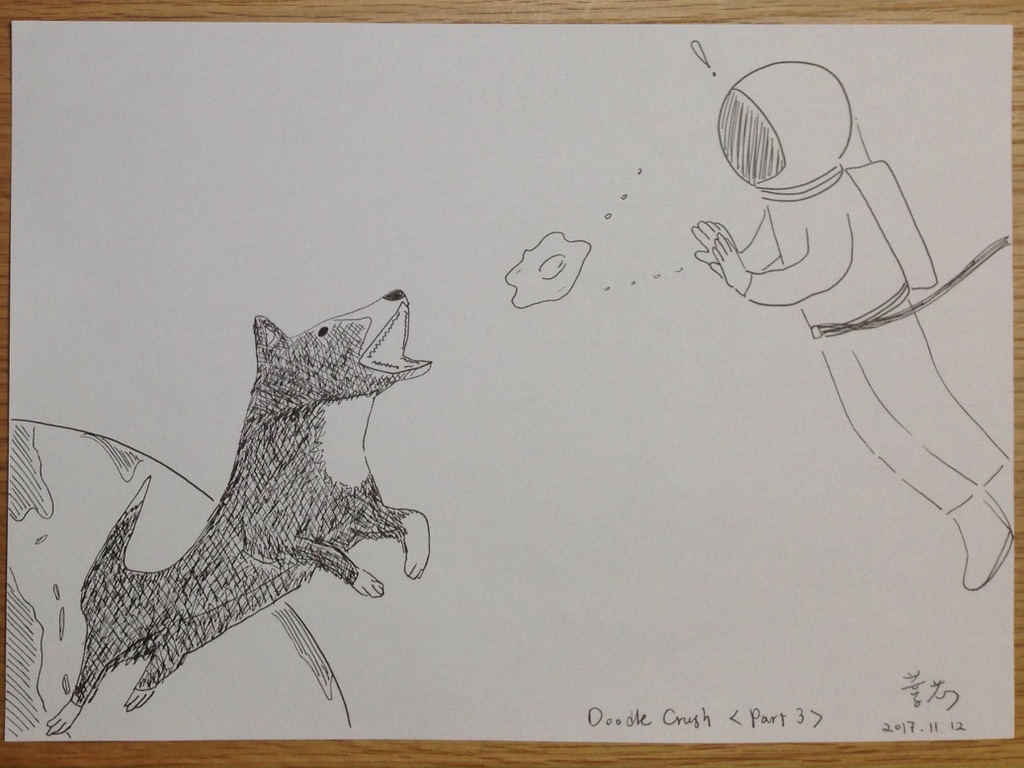 !
Doodle Crush <Part 3>
2017.11.12